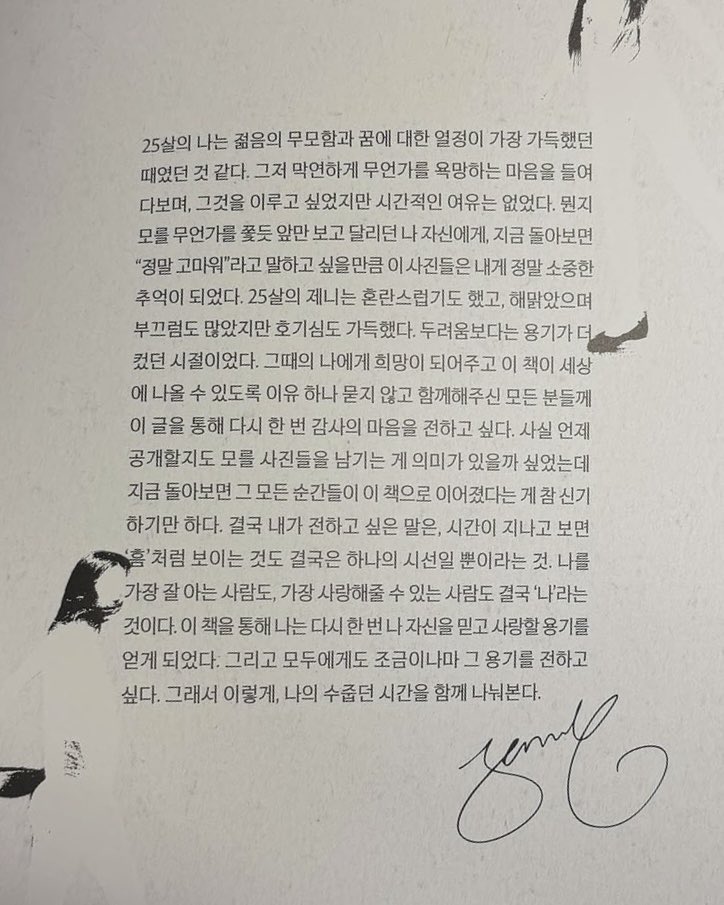 25살의 나는 젊음의 무모함과 꿈에 대한 열정이 가장 가득했던
때였던 것 같다. 그저 막연하게 무언가를 욕망하는 마음을 들여
다보며, 그것을 이루고 싶었지만 시간적인 여유는 없었다. 뭔지
모를 무언가를 쫓듯 앞만 보고 달리던 나 자신에게, 지금 돌아보면
“정말 고마워”라고 말하고 싶을만큼 이 사진들은 내게 정말 소중한
추억이 되었다. 25살의 제니는 혼란스럽기도 했고, 해맑았으며
부끄럼도 많았지만 호기심도 가득했다. 두려움보다는 용기가 더
컸던 시절이었다. 그때의 나에게 희망이 되어주고 이 책이 세상
에 나올 수 있도록 이유 하나 묻지 않고 함께해주신 모든 분들께
이 글을 통해 다시 한 번 감사의 마음을 전하고 싶다. 사실 언제
공개할지도 모를 사진들을 남기는 게 의미가 있을까 싶었는데
지금 돌아보면 그 모든 순간들이 이 책으로 이어졌다는 게 참 신기
하기만 하다. 결국 내가 전하고 싶은 말은, 시간이 지나고 보면
‘흠’처럼 보이는 것도 결국은 하나의 시선일 뿐이라는 것. 나를
가장 잘 아는 사람도, 가장 사랑해줄 수 있는 사람도 결국 ‘나’라는
것이다. 이 책을 통해 나는 다시 한 번 나 자신을 믿고 사랑할 용기를
얻게 되었다. 그리고 모두에게도 조금이나마 그 용기를 전하고
싶다. 그래서 이렇게, 나의 수줍던 시간을 함께 나눠본다.